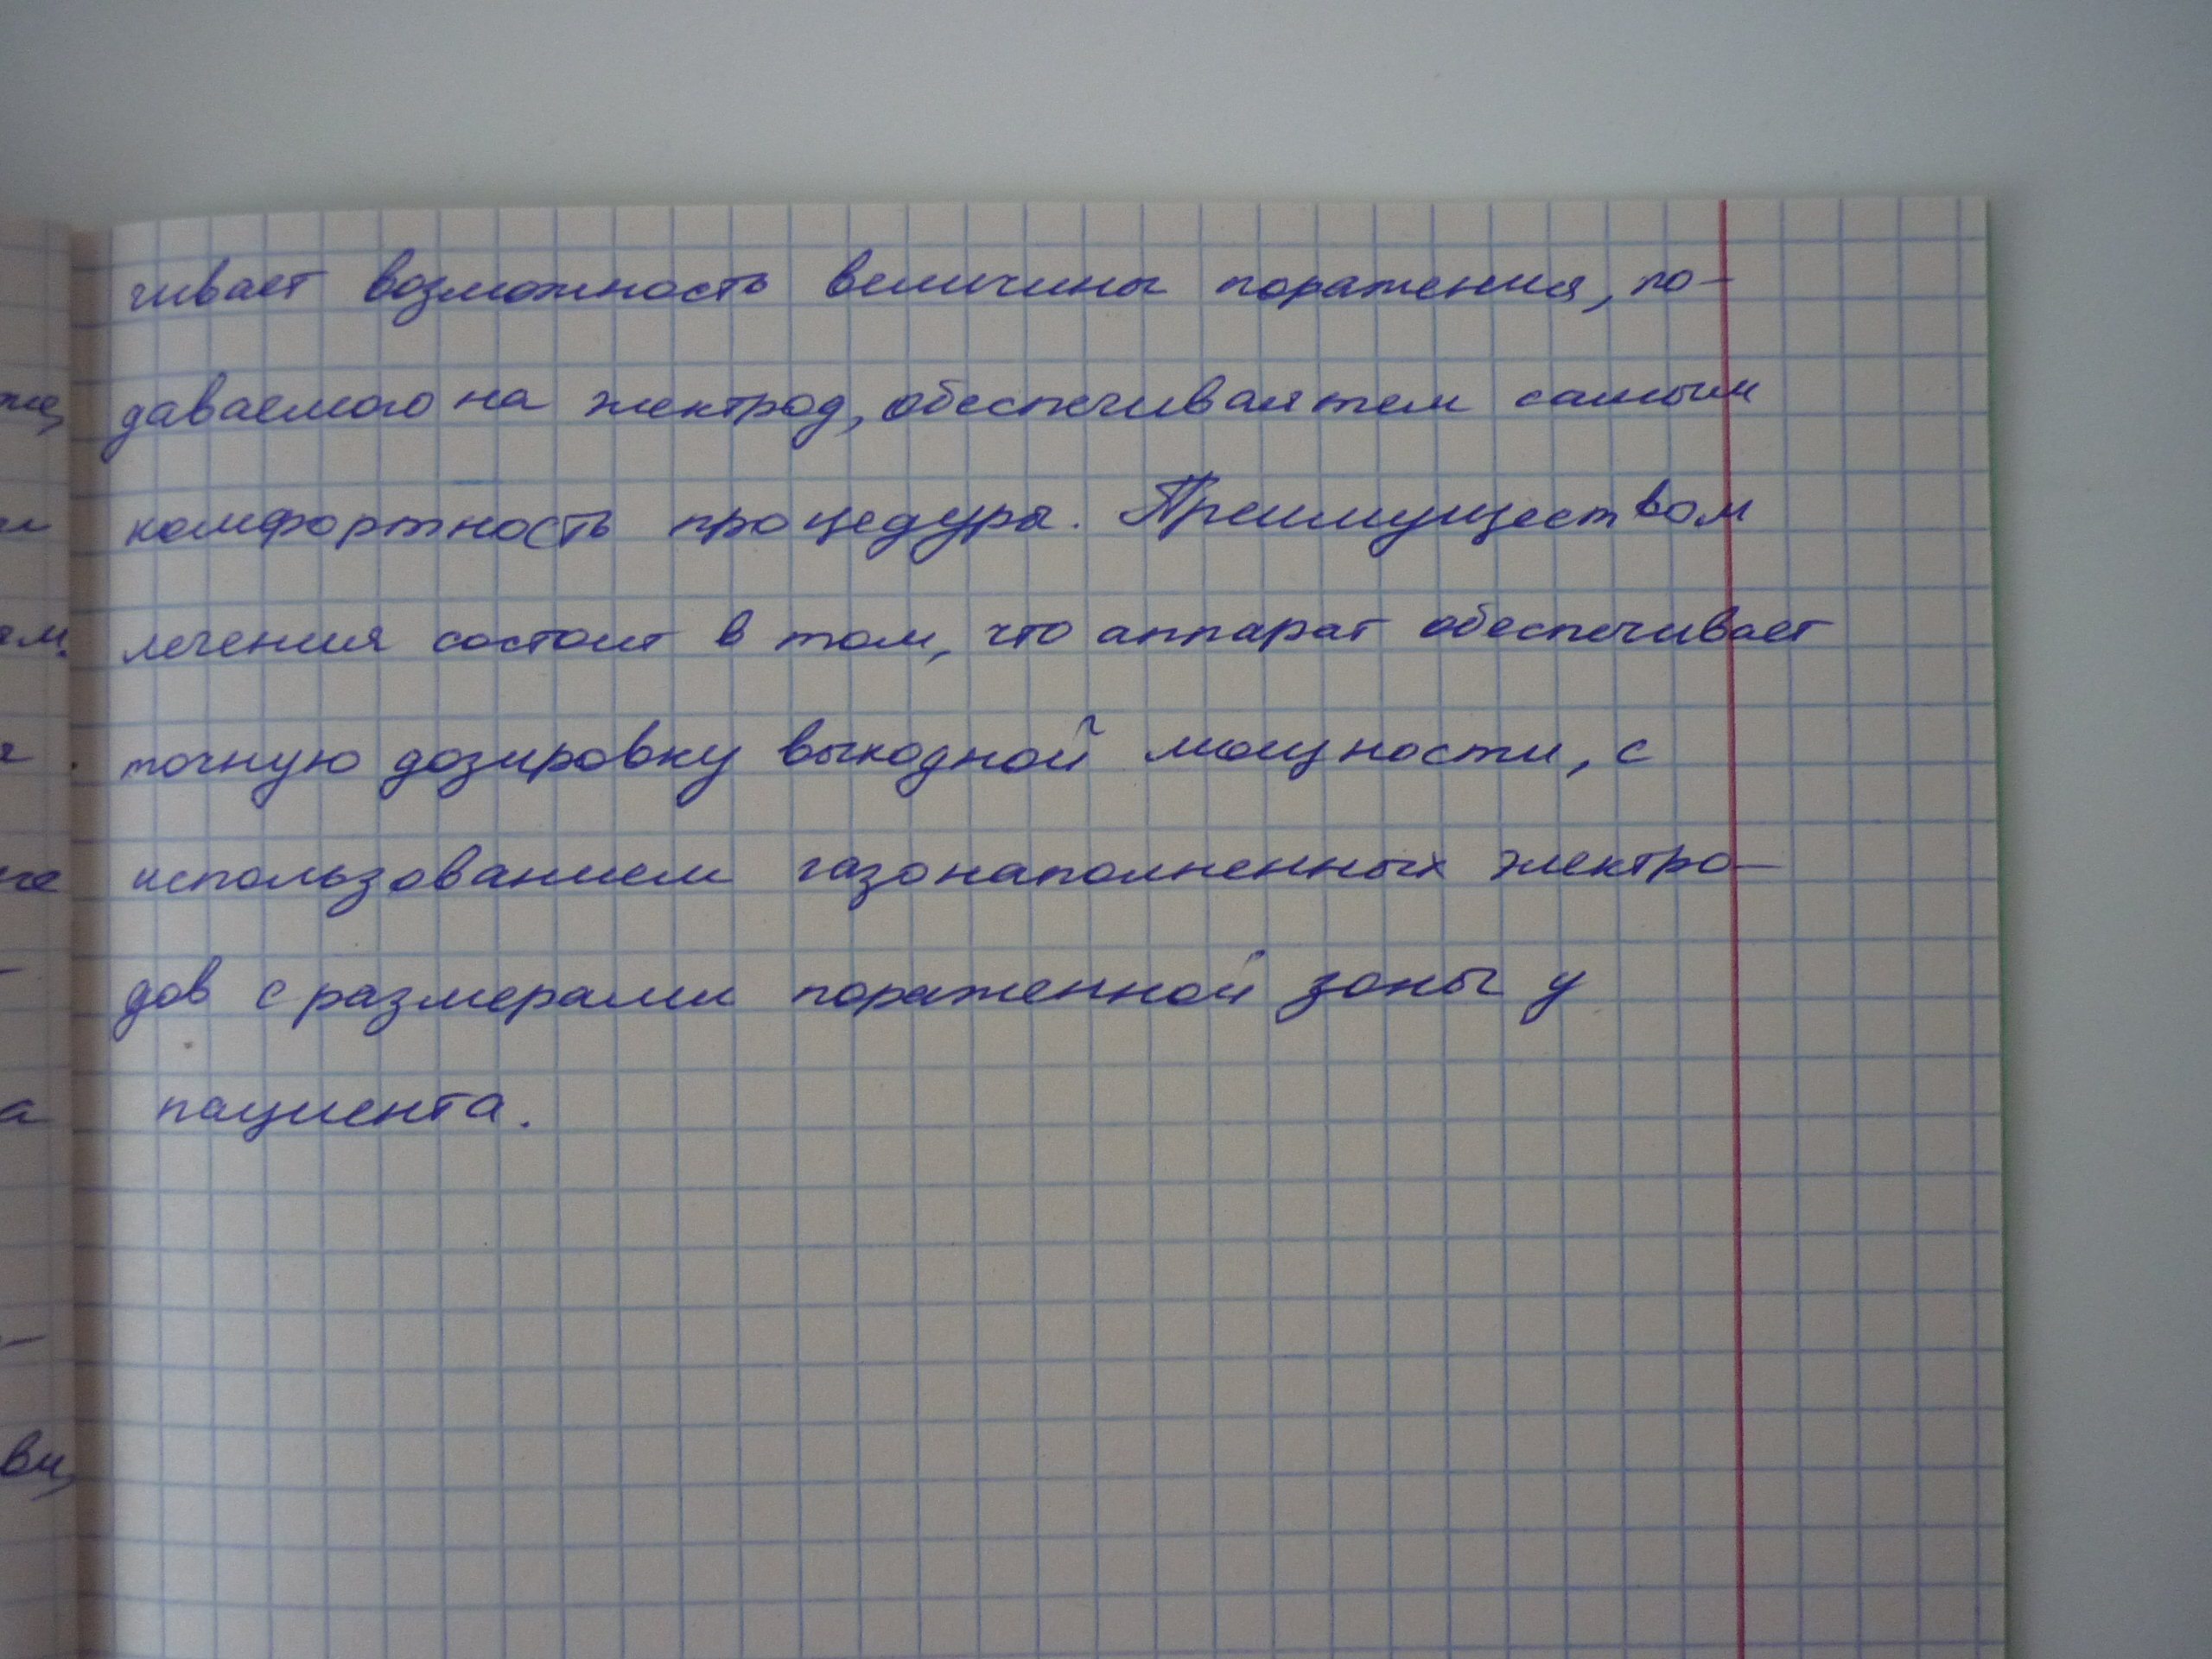 чивает возможность величины поражения, по-
даваемого на электрод, обеспечивая тем самым
комфортность процедуры. Преимуществом
лечения состоит в том, что аппарат обеспечивает
точную дозировку выходной мощности, с
использованием газонаполненных электро-
дов с размерами пораженной зоны у
пациента.